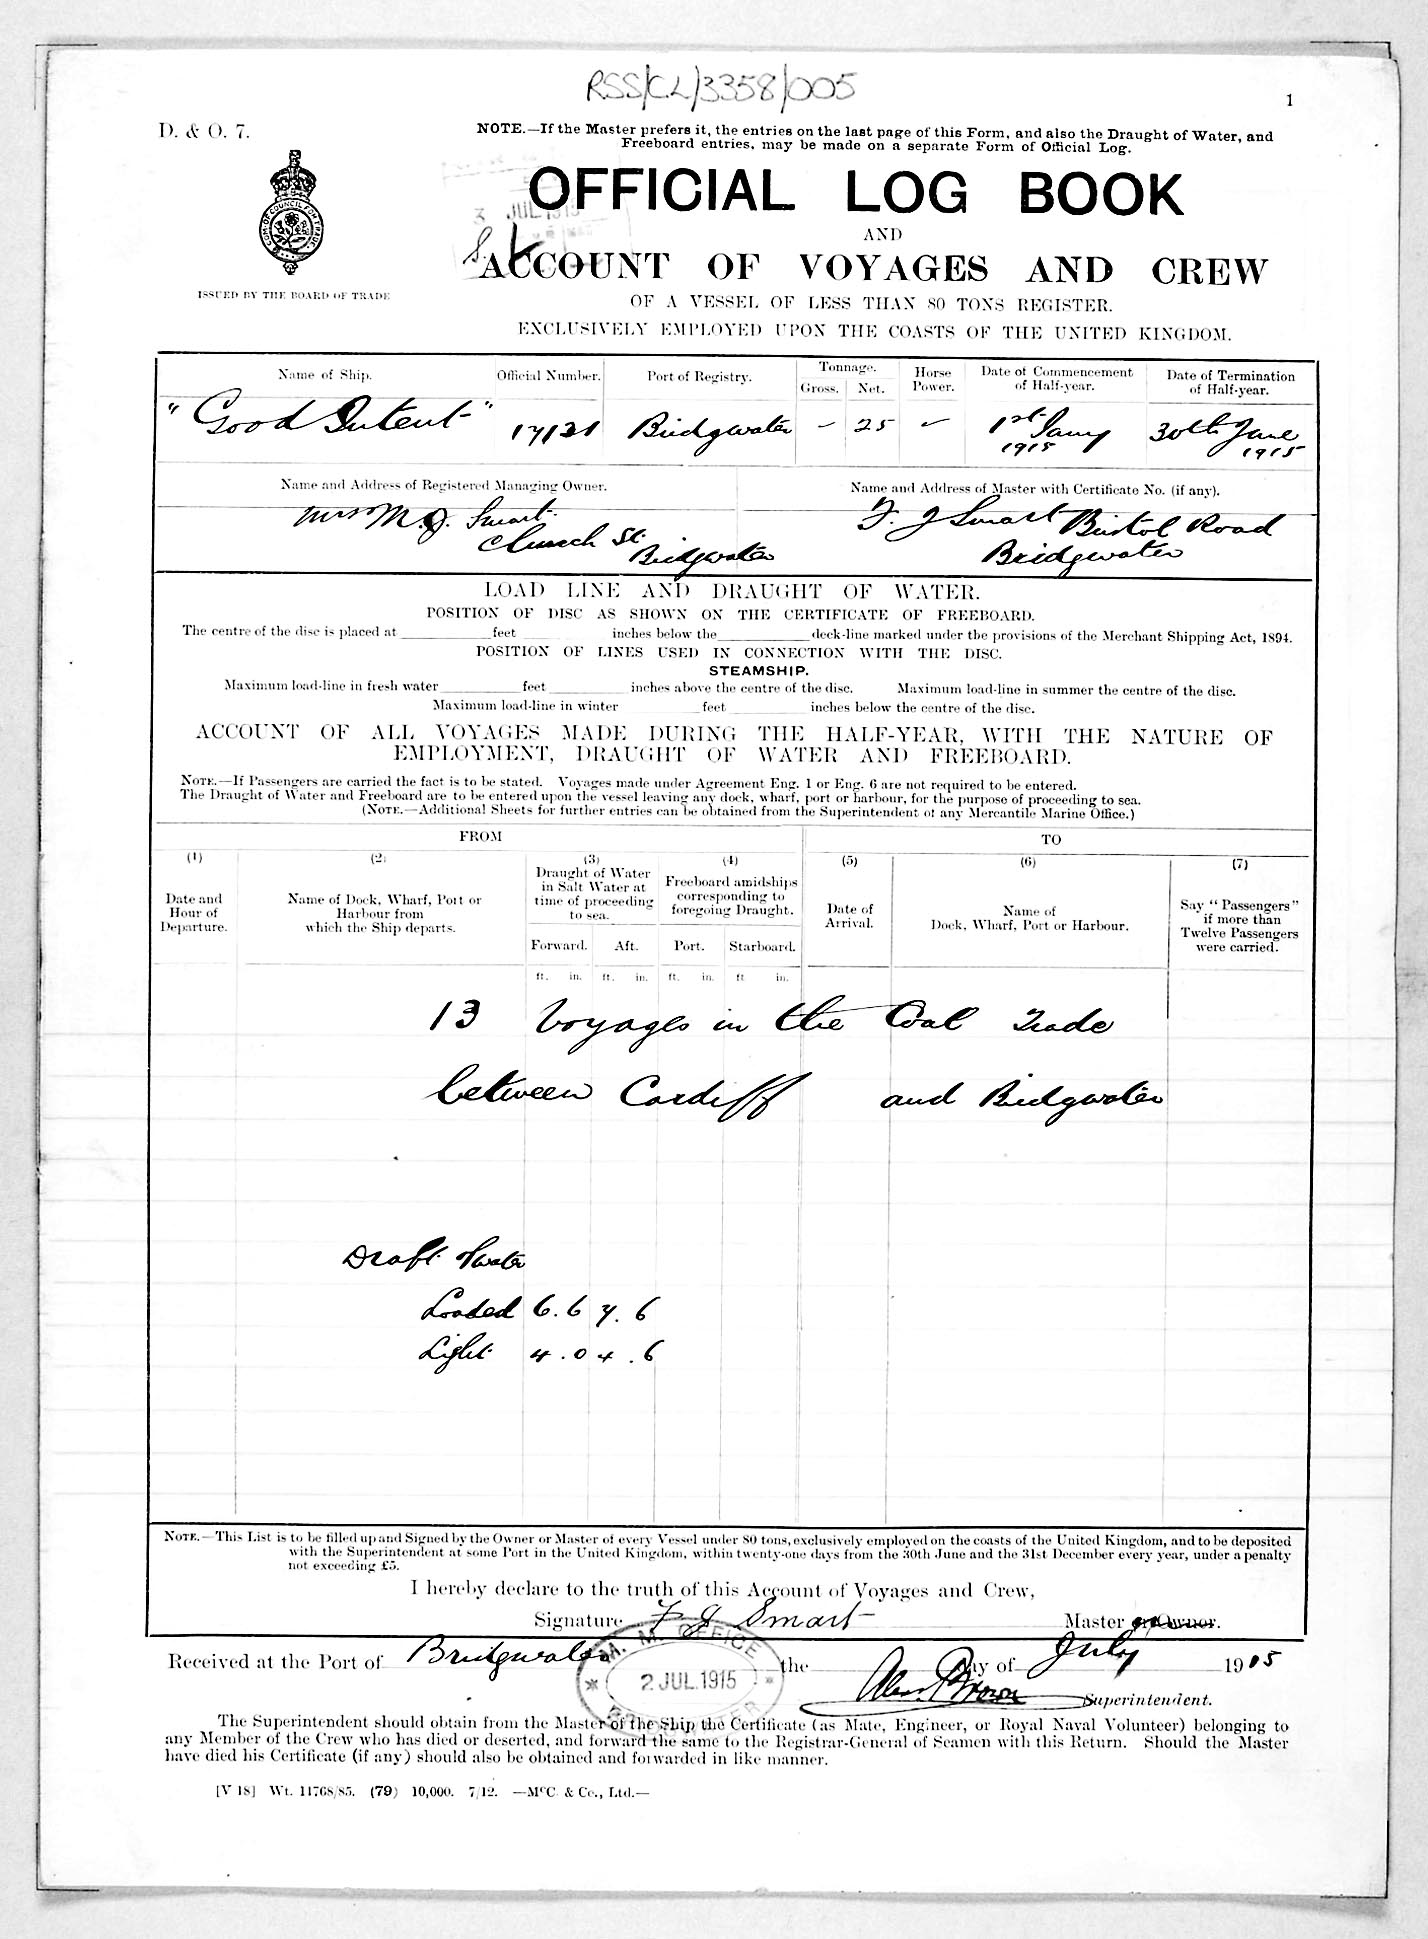 RSS/CL/3358/005
1
D. & O. 7.
NOTE.—If the Master prefers it, the entries on the last page of this Form, and also the Draught of Water, and
Freeboard entries, may be made on a separate Form of Official Log.
OFFICIAL LOG BOOK
3 JUL 1915
AND
ACCOUNT OF VOYAGES AND CREW
COM. OF COUNCIL FOR TRADE
ISSUED BY THE BOARD OF TRADE
OF A VESSEL OF LESS THAN 80 TONS REGISTER.
EXCLUSIVELY EMPLOYED UPON THE COASTS OF THE UNITED KINGDOM.
Name of Ship. Official Number. Port of Registry. Tonnage. Gross. Net. Horse Power. Date of Commencement of Half-year. Date of Termination of Half-year.
"Good Intent" 17121 Bridgwater – 25 – 1st Jany 1915 30th June 1915
Name and Address of Registered Managing Owner. Name and Address of Master with Certificate No. (if any).
Mrs M. J. Smart F. J Smart Bristol Road
Church St. Bridgwater
Bridgwater
LOAD LINE AND DRAUGHT OF WATER.
POSITION OF DISC AS SHOWN ON THE CERTIFICATE OF FREEBOARD.
The centre of the disc is placed at feet inches below the deck-line marked under the provisions of the Merchant Shipping Act, 1894.
POSITION OF LINES USED IN CONNECTION WITH THE DISC.
STEAMSHIP.
Maximum load-line in fresh water feet inches above the centre of the disc. Maximum load-line in summer the centre of the disc.
Maximum load-line in winter feet inches below the centre of the disc.
ACCOUNT OF ALL VOYAGES MADE DURING THE HALF-YEAR, WITH THE NATURE OF
EMPLOYMENT, DRAUGHT OF WATER AND FREEBOARD.
NOTE.—If Passengers are carried the fact is to be stated. Voyages made under Agreement Eng. 1 or Eng. 6 are not required to be entered.
The Draught of Water and Freeboard are to be entered upon the vessel leaving any dock, wharf, port or harbour, for the purpose of proceeding to sea.
(NOTE.—Additional Sheets for further entries can be obtained from the Superintendent of any Mercantile Marine Office.)
FROM TO
(1) (2) (3) (4) (5) (6) (7)
Date and Hour of Departure.
Name of Dock, Wharf, Port or Harbour from which the Ship departs.
Draught of Water in Salt Water at time of proceeding to sea.
Freeboard amidships corresponding to foregoing Draught.
Date of Arrival.
Name of Dock, Wharf, Port or Harbour.
Say "Passengers" if more than Twelve Passengers were carried.
Forward. Aft. Port. Starboard.
ft. in. ft. in. ft. in. ft in.
13 Voyages in the Coal Trade
between Cardiff and Bridgwater
Draft of water
Loaded 6.6 7.6
Light 4.0 4.6
NOTE.—This List is to be filled up and Signed by the Owner or Master of every Vessel under 80 tons, exclusively employed on the coasts of the United Kingdom, and to be deposited
with the Superintendent at some Port in the United Kingdom, within twenty-one days from the 30th June and the 31st December every year, under a penalty
not exceeding £5.
I hereby declare to the truth of this Account of Voyages and Crew,
Signature F J Smart Master or Owner.
Received at the Port of Bridgwater the day of July 1915
M. M. OFFICE
2 JUL 1915
BRIDGWATER
Alex. Brown Superintendent.
The Superintendent should obtain from the Master of the Ship the Certificate (as Mate, Engineer, or Royal Naval Volunteer) belonging to
any Member of the Crew who has died or deserted, and forward the same to the Registrar-General of Seamen with this Return. Should the Master
have died his Certificate (if any) should also be obtained and forwarded in like manner.
[V 18] Wt. 11768/85. (79) 10,000. 7/12. —McC. & Co., Ltd.—